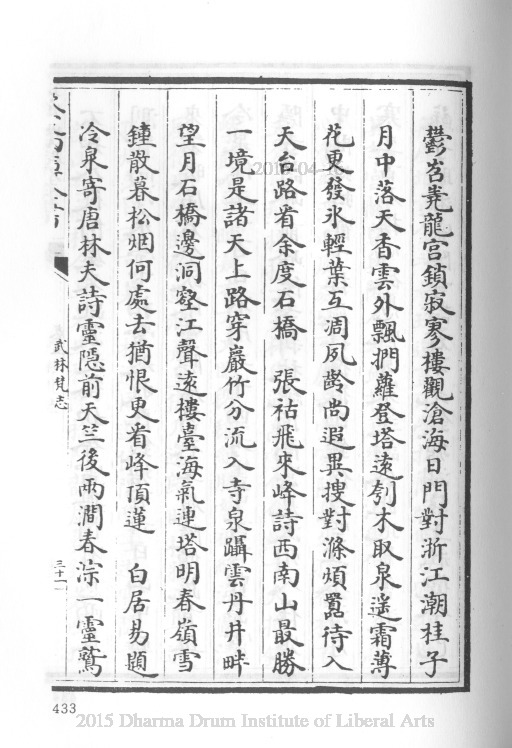 鬱岧嶤龍宫鎖寂寥樓觀滄海日門對浙江潮桂子
月中落天香雲外飄捫蘿登塔遠刳木取泉遥霜薄
花更發氷輕葉互凋夙齡尚遐異搜對滌煩囂待入
天台路看余度石橋 張祜飛來峰詩西南山最勝
一境是諸天上路穿巖竹分流入寺泉躡雲丹井畔
望月石橋邊洞壑江聲遠樓臺海氣連塔明春嶺雪
鍾散暮松烟何處去猶恨更看峰頂蓮 白居易題
冷泉寄唐林夫詩靈隠前天竺後兩澗春淙一靈鷲
武林梵志
三十一
433
2015 Dharma Drum Institute of Liberal Arts